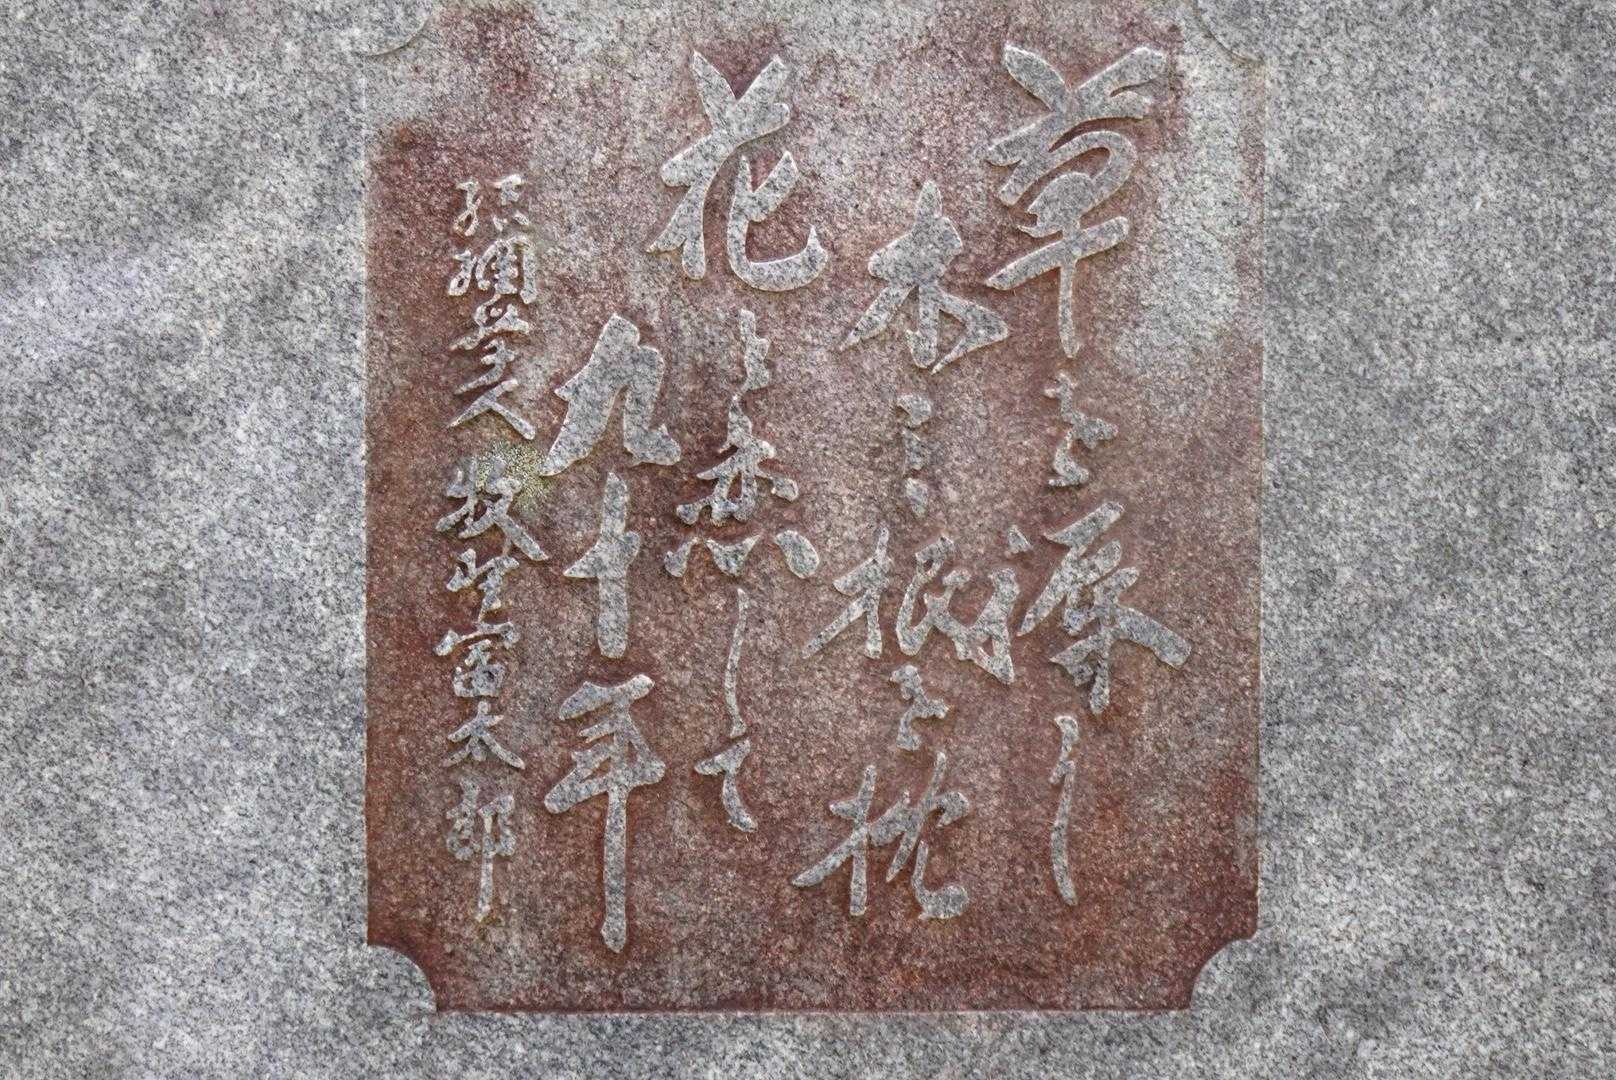 草を褥に
木の根を枕
花と恋して
九十年
結網学人 牧野富太郎